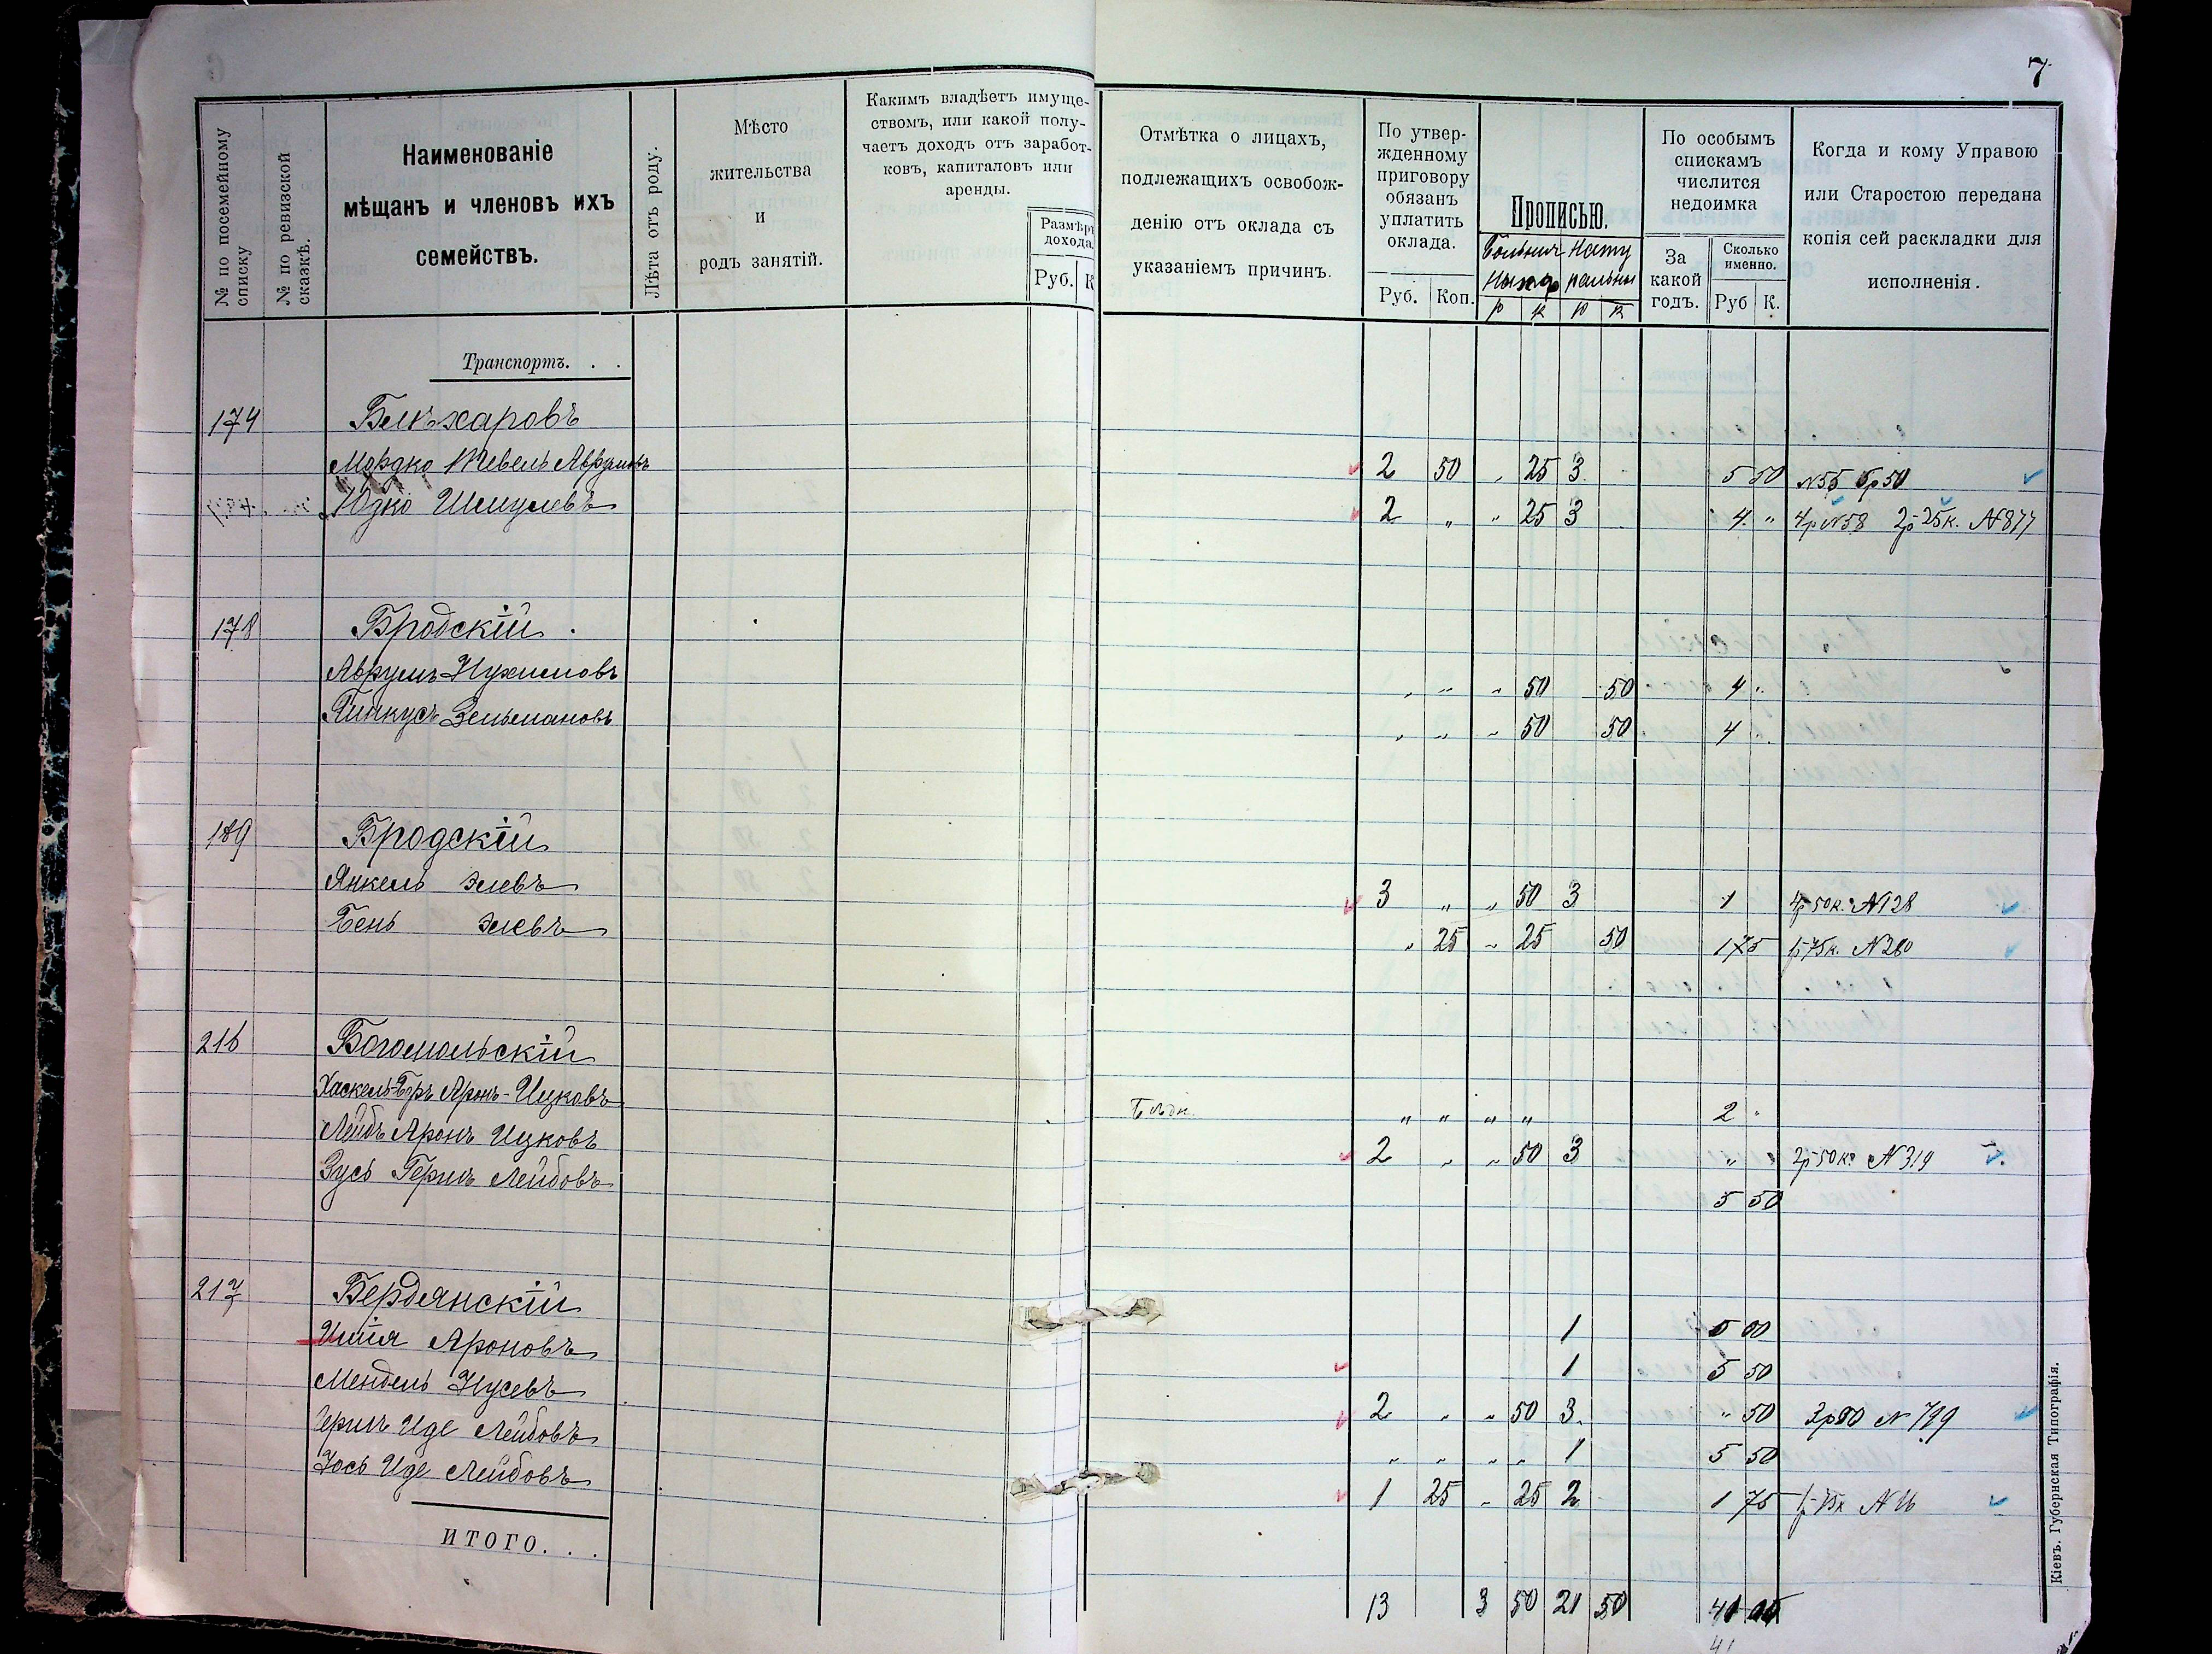 7
№ по посемейному списку
№ по ревизской сказкѣ.
Наименованіе
мѣщанъ и членовъ ихъ
семействъ.
Лѣта отъ роду.
Мѣсто
жительства
и
родъ занятій.
Какимъ владѣетъ имуще-
ствомъ, или какой полу-
чаетъ доходъ отъ заработ-
ковъ, капиталовъ или
аренды.
Размѣръ
дохода.
Руб. К
Отмѣтка о лицахъ,
подлежащихъ освобож-
денію отъ оклада съ
указаніемъ причинъ.
По утвер-
жденному
приговору
обязанъ
уплатить
оклада.
Руб. Коп.
Прописью.
р к р к
По особымъ
спискамъ
числится
недоимка
За
какой
годъ.
Сколько
именно.
Руб К.
Когда и кому Управою
или Старостою передана
копія сей раскладки для
исполненія.
Транспортъ. . .
174
Мордко Тевель Аврумовъ 2 50 " 25 3 5 50 №55 5р50
Юдко Шмулевъ 2 " " 25 3 4 " 4р №58 2р 25к. №877
178 Бродскій
Аврумъ Нухимовъ " " " 50 50 4 "
Пинкусъ Зельмановъ " " " 50 50 4 "
189 Бродскій
Янкель Элевъ 3 " " 50 3 1 4р 50к. №128
Бень Элевъ " 25 " 25 50 1 75 1р 75к. №280
216 Богомольскій
Хаскель-Беръ Аронъ-Ицковъ " " " " 2 "
Лейбъ Аронъ Ицковъ 2 " " 50 3 " " 2р 50к. №319
Зусь Гершъ Лейбовъ 5 50
217 Бердянскій
Ишія Ароновъ 1
Мендель Нусевъ 1 5 50
Гершъ Иде Лейбовъ 2 " " 50 3 " 50 №799
Іось Иде Лейбовъ " " " " 1 5 50
1 25 " 25 2 1 75
ИТОГО. . .
13 3 50 21 50
41
Кіевъ. Губернская Типографія.